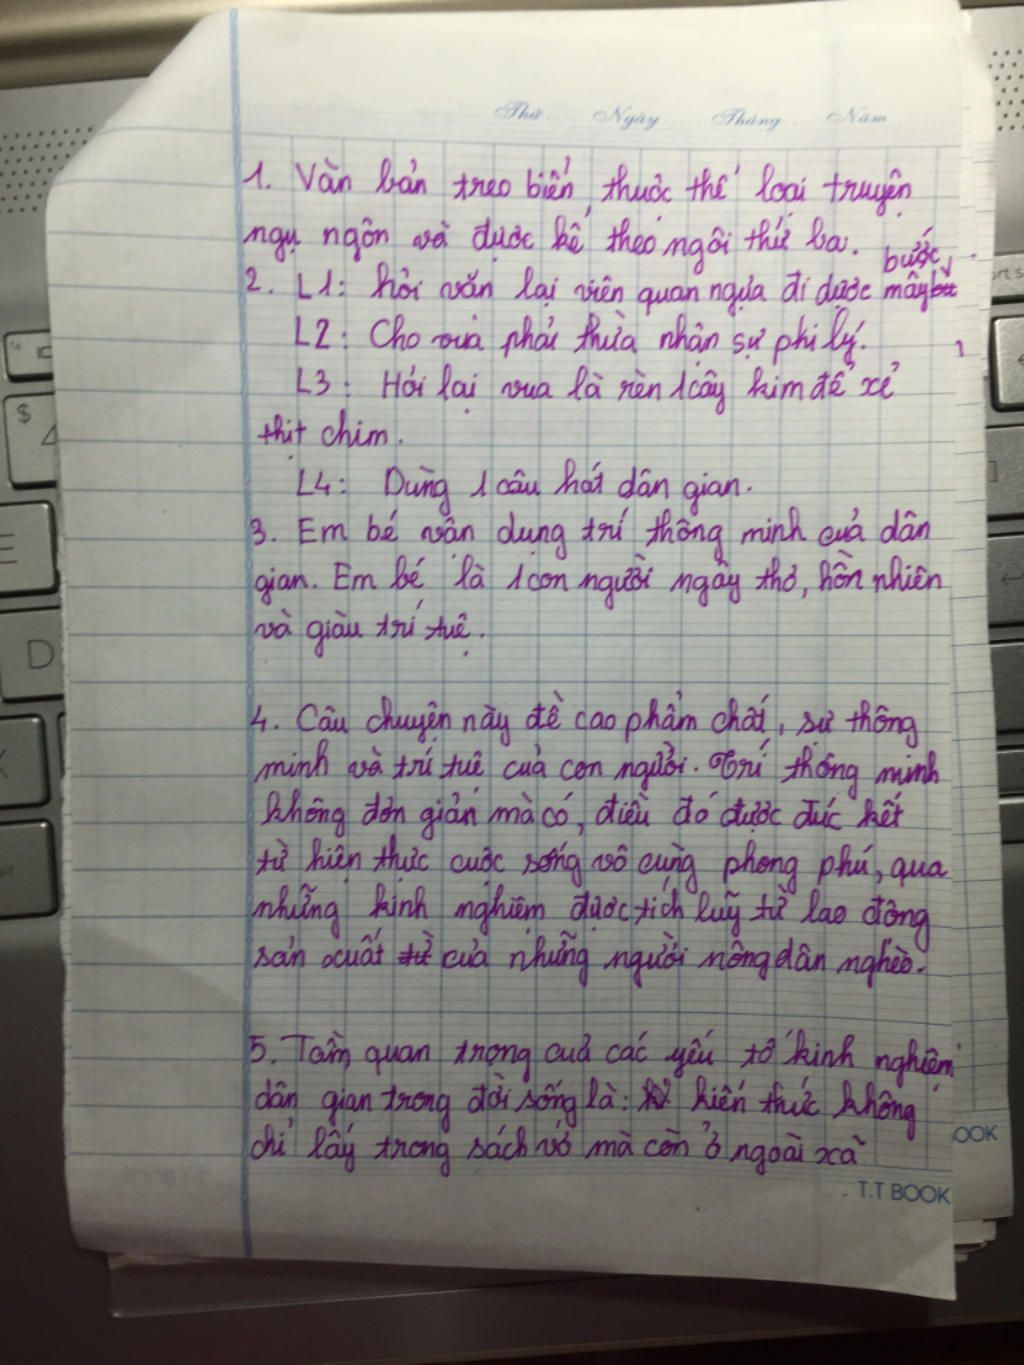 Thứ ..... Ngày ..... Tháng ..... Năm .....
1. Vản bản treo biển thuộc thể loại truyện
ngụ ngôn và được kể theo ngôi thứ ba.
bước
2. L1: hỏi vặn lại viên quan ngựa đi được mấy
L2: Cho vua phải thừa nhận sự phi lý.
L3: Hỏi lại vua là rèn 1 cây kim để xẻ
thịt chim.
L4: Dùng 1 câu hát dân gian.
3. Em bé vận dụng trí thông minh của dân
gian. Em bé là 1 con người ngây thơ, hồn nhiên
và giàu trí tuệ.
4. Câu chuyện này đề cao phẩm chất, sự thông
minh và trí tuệ của con người. Trí thông minh
không đơn giản mà có, điều đó được đúc kết
từ hiện thực cuộc sống vô cùng phong phú, qua
những kinh nghiệm được tích luỹ từ lao động
sản xuất của những người nông dân nghèo.
5. Tầm quan trọng của các yếu tố kinh nghiệm
dân gian trong đời sống là: kiến thức không
chỉ lấy trong sách vở mà còn ở ngoài xã
OOK
T.T BOOK
$
4
E
D
X